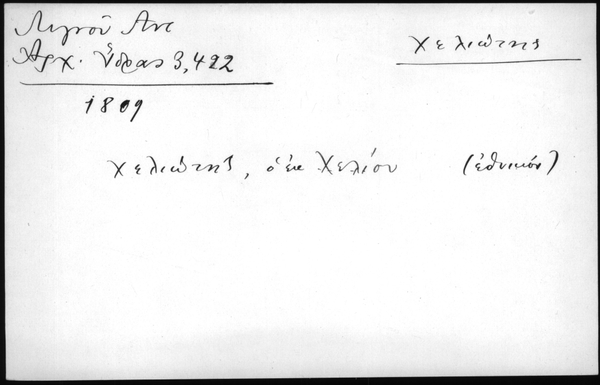 Λιγνοῦ Αντ
Αρχ. Ὕδρας 3,422
χελιώτης
1809
χελιώτης, ὁ ἐκ Χελίου (ἐθνικόν)